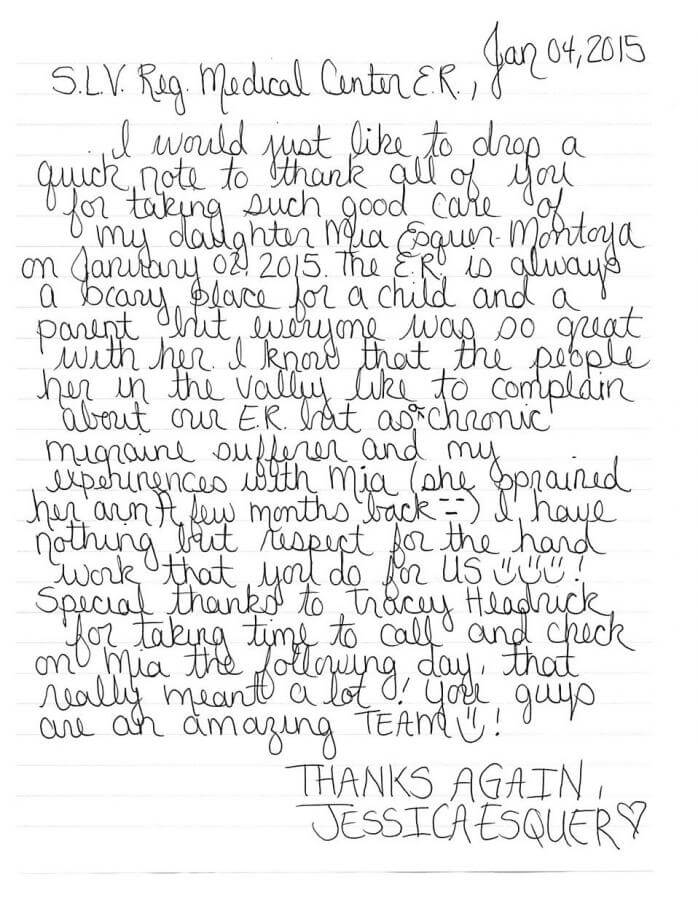 Jan 04, 2015
S.L.V. Reg. Medical Center E.R.,
I would just like to drop a
quick note to thank all of you
for taking such good care of
my daughter Mia Esquer-Montoya
on January 02, 2015. The E.R. is always
a scary place for a child and a
parent but everyone was so great
with her. I know that the people
her in the vally like to complain
about our E.R. but as a chronic
migraine sufferer and my
experinences with Mia (she sprained
her arm A few months back --) I have
nothing but respect for the hard
work that you do for US !
Special thanks to Tracey Headrick
for taking time to call and check
on Mia the following day, that
really meant a lot! You guys
are an amazing TEAM !
THANKS AGAIN,
JESSICA ESQUER